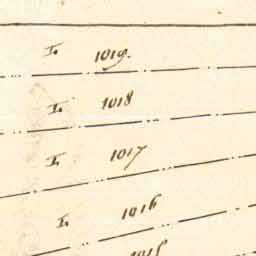 I. 1019.
I. 1018
I. 1017
I. 1016
1015